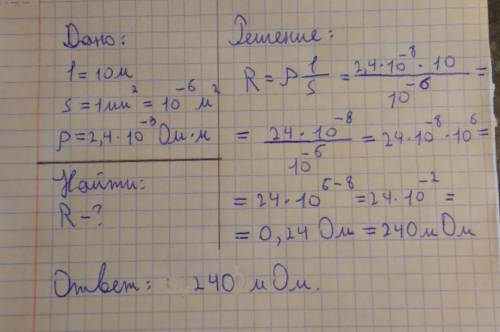 Дано:
l = 10м
s = 1мм² = 10⁻⁶ м²
ρ = 2,4·10⁻⁸ Ом·м
Найти:
R - ?
Решение:
R = ρ l/s = 2,4·10⁻⁸·10/10⁻⁶ =
= 24·10⁻⁸/10⁻⁶ = 24·10⁻⁸·10⁶ =
= 24·10⁶⁻⁸ = 24·10⁻² =
= 0,24 Ом = 240 мОм
Ответ: 240 мОм.